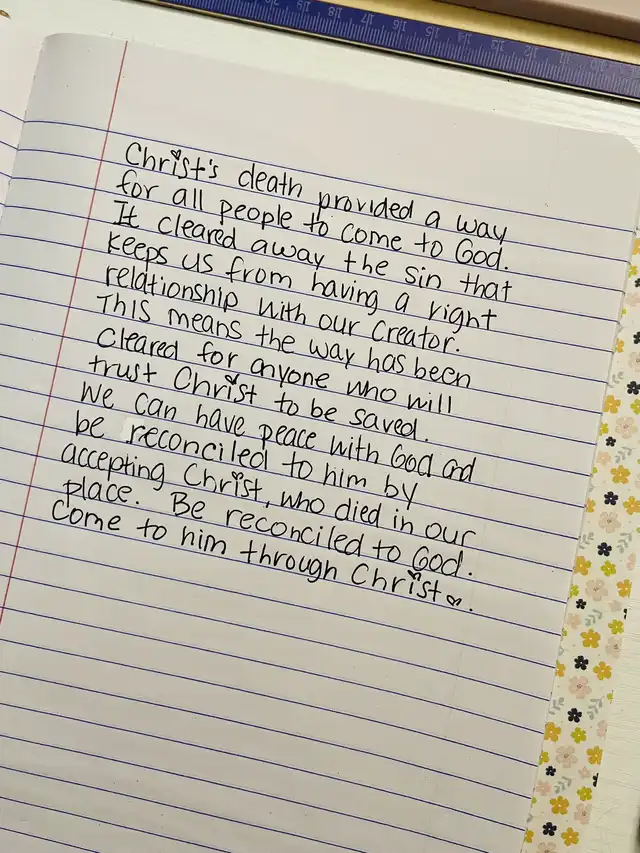 Christ's death provided a way
for all people to come to God.
It cleared away the sin that
keeps us from having a right
relationship with our Creator.
This means the way has been
cleared for anyone who will
trust Christ to be saved.
We can have peace with God and
be reconciled to him by
accepting Christ, who died in our
place. Be reconciled to God.
Come to him through Christ ♡.